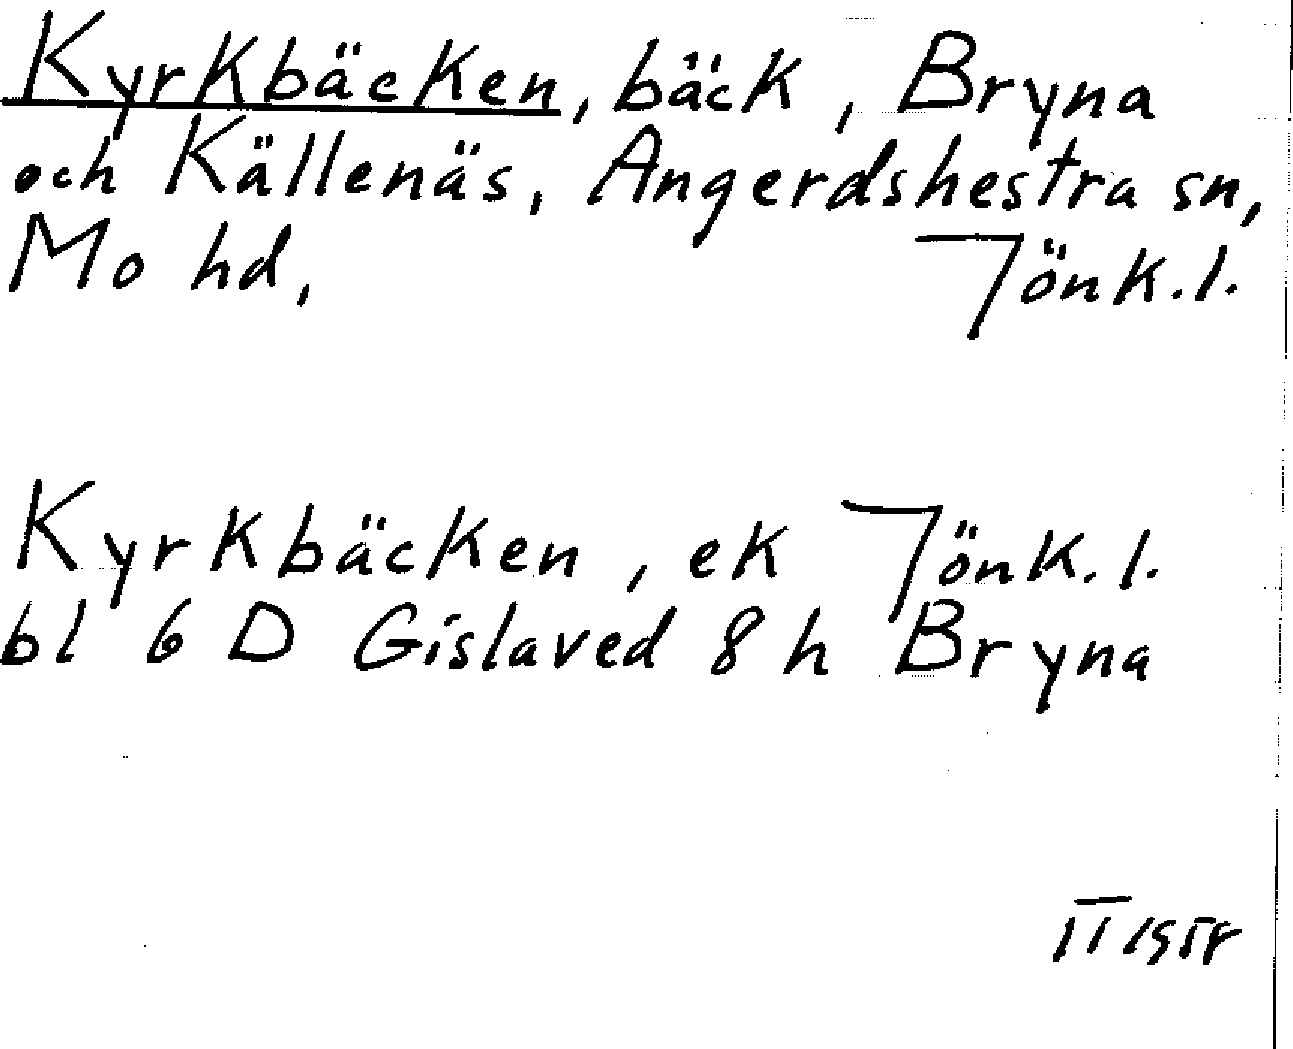 Kyrkbäcken, bäck, Bryna
och Källenäs, Angerdshestra sn,
Mo hd, Jönk.l.
Kyrkbäcken, ek Jönk.l.
bl 6 D Gislaved 8 h Bryna